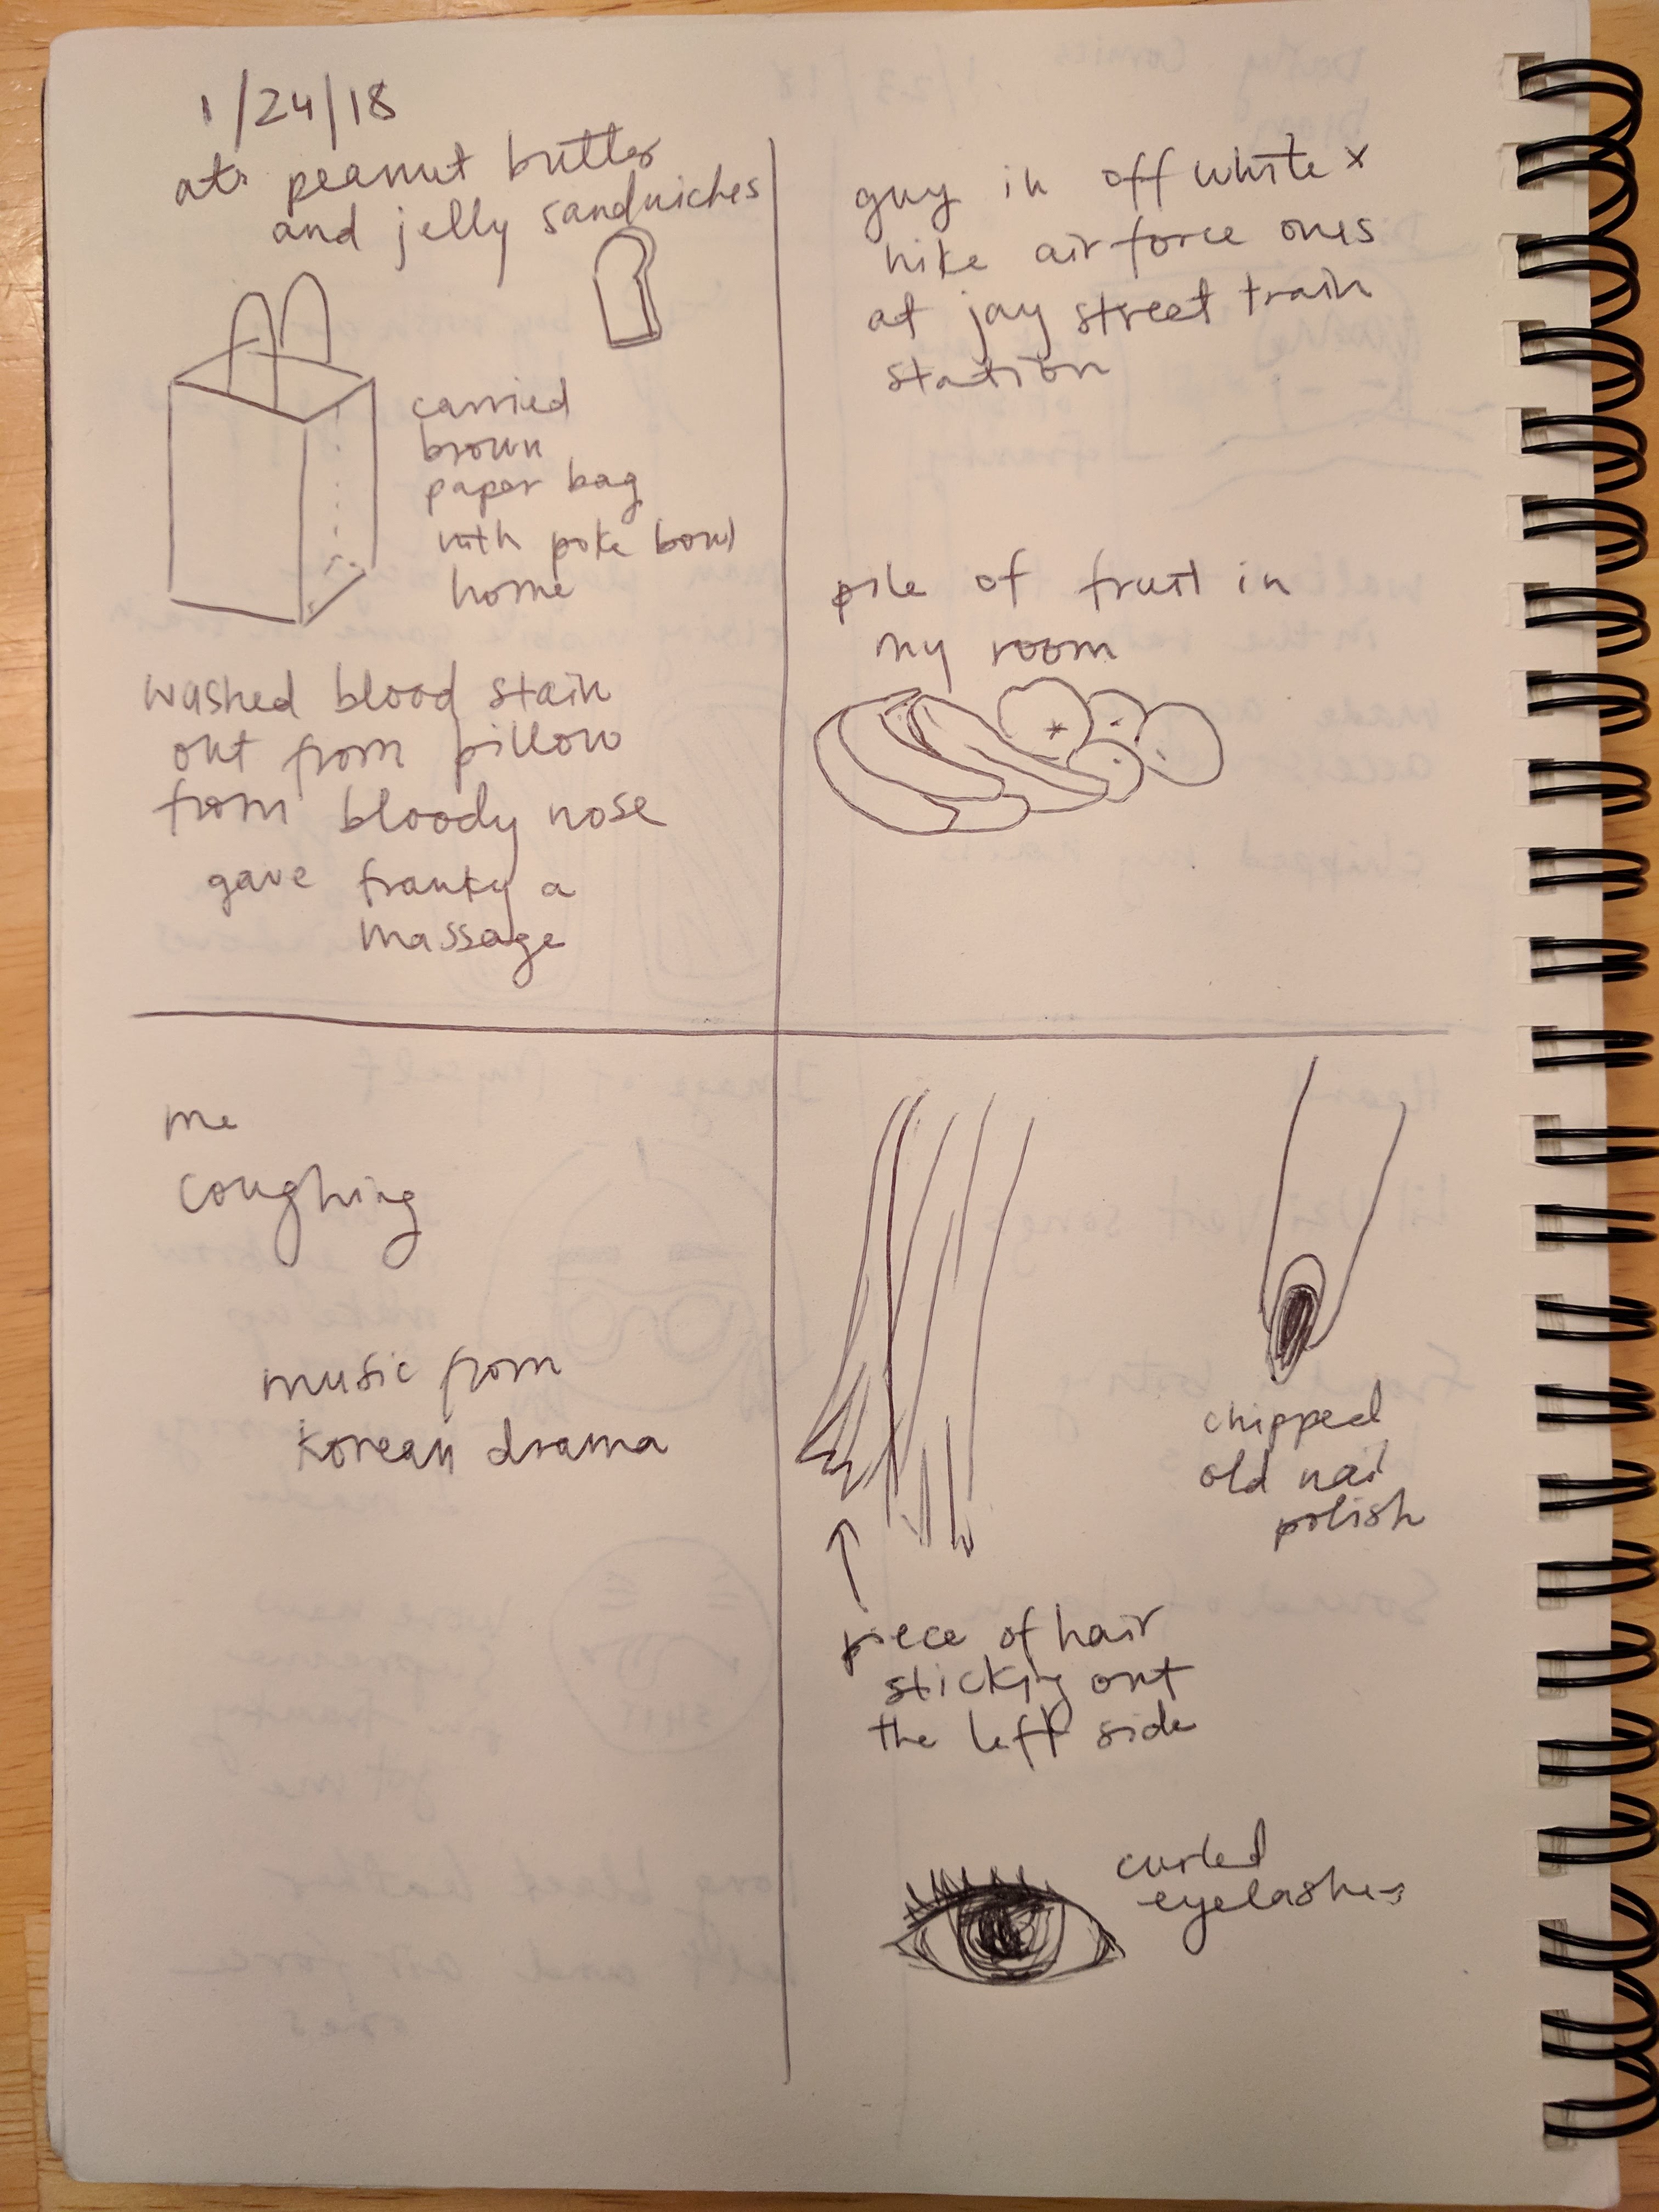 1/24/18
ate peanut butter
and jelly sandwiches
carried
brown
paper bag
with poke bowl
home
washed blood stain
out from pillow
from bloody nose
gave franky a
massage
guy in off white x
nike air force ones
at jay street train
station
pile of fruit in
my room
me
coughing
music from
korean drama
chipped
old nail
polish
piece of hair
sticking out
the left side
curled
eyelashes